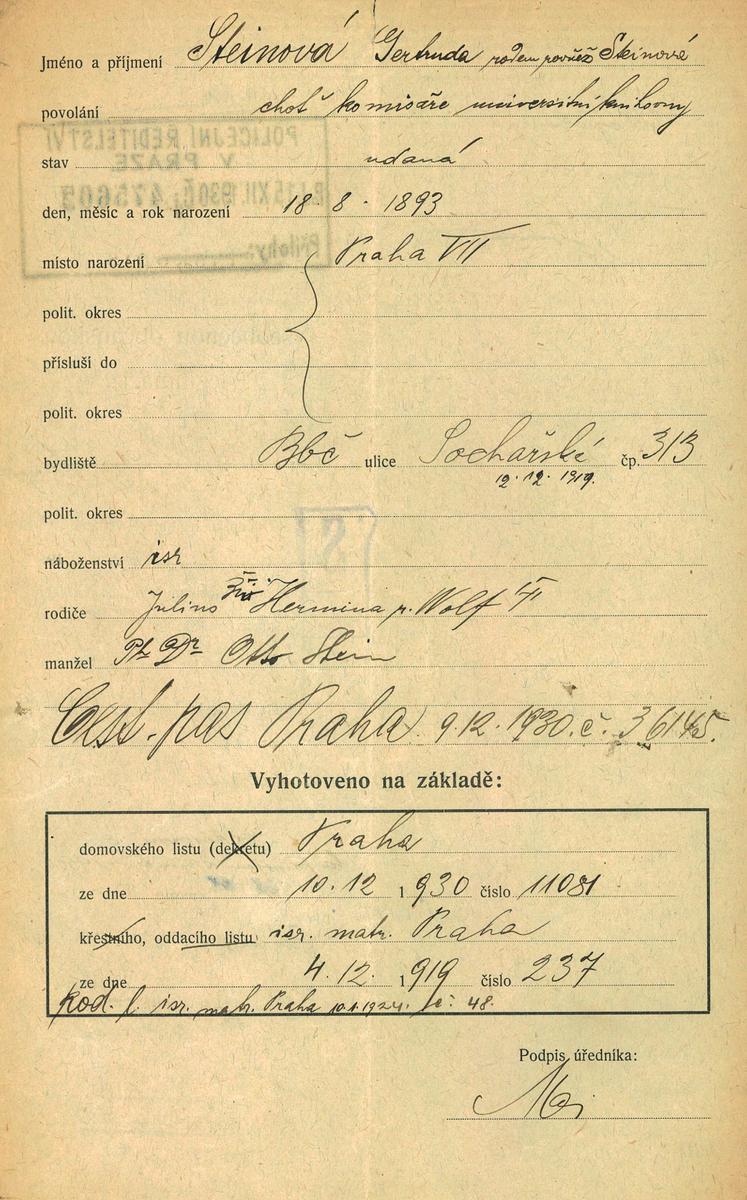 Jméno a příjmení Steinová Gertruda rodem rovněž Steinová
povolání choť komisaře universitní knihovny
POLICEJNÍ ŘEDITELSTVÍ
V PRAZE
15 XII. 1930 Č: 475603
Přílohy:
stav vdaná
den, měsíc a rok narození 18. 8. 1893
místo narození Praha VII
polit. okres
přísluší do
polit. okres
bydliště Bbč ulice Sochařská čp. 313
12. 12. 1919.
polit. okres
náboženství isr
rodiče Julius Hermina r. Wolf
manžel Ph Dr Otto Stein
Cest. pas Praha 9.12.1930. č. 36145.
Vyhotoveno na základě:
domovského listu (dekretu) Praha
ze dne 10.12 1930 číslo 11081
křestního, oddacího listu isr. matr. Praha
ze dne 4.12. 1919 číslo 237
rod. l. isr. matr. Praha 10.1.1924. č: 48.
Podpis úředníka: